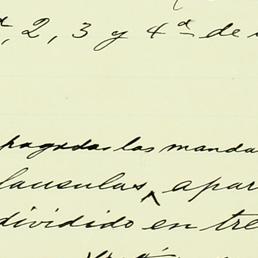 , 2, 3 y 4ª de
pagadas las manda
lausulas, apar
dividido en tre